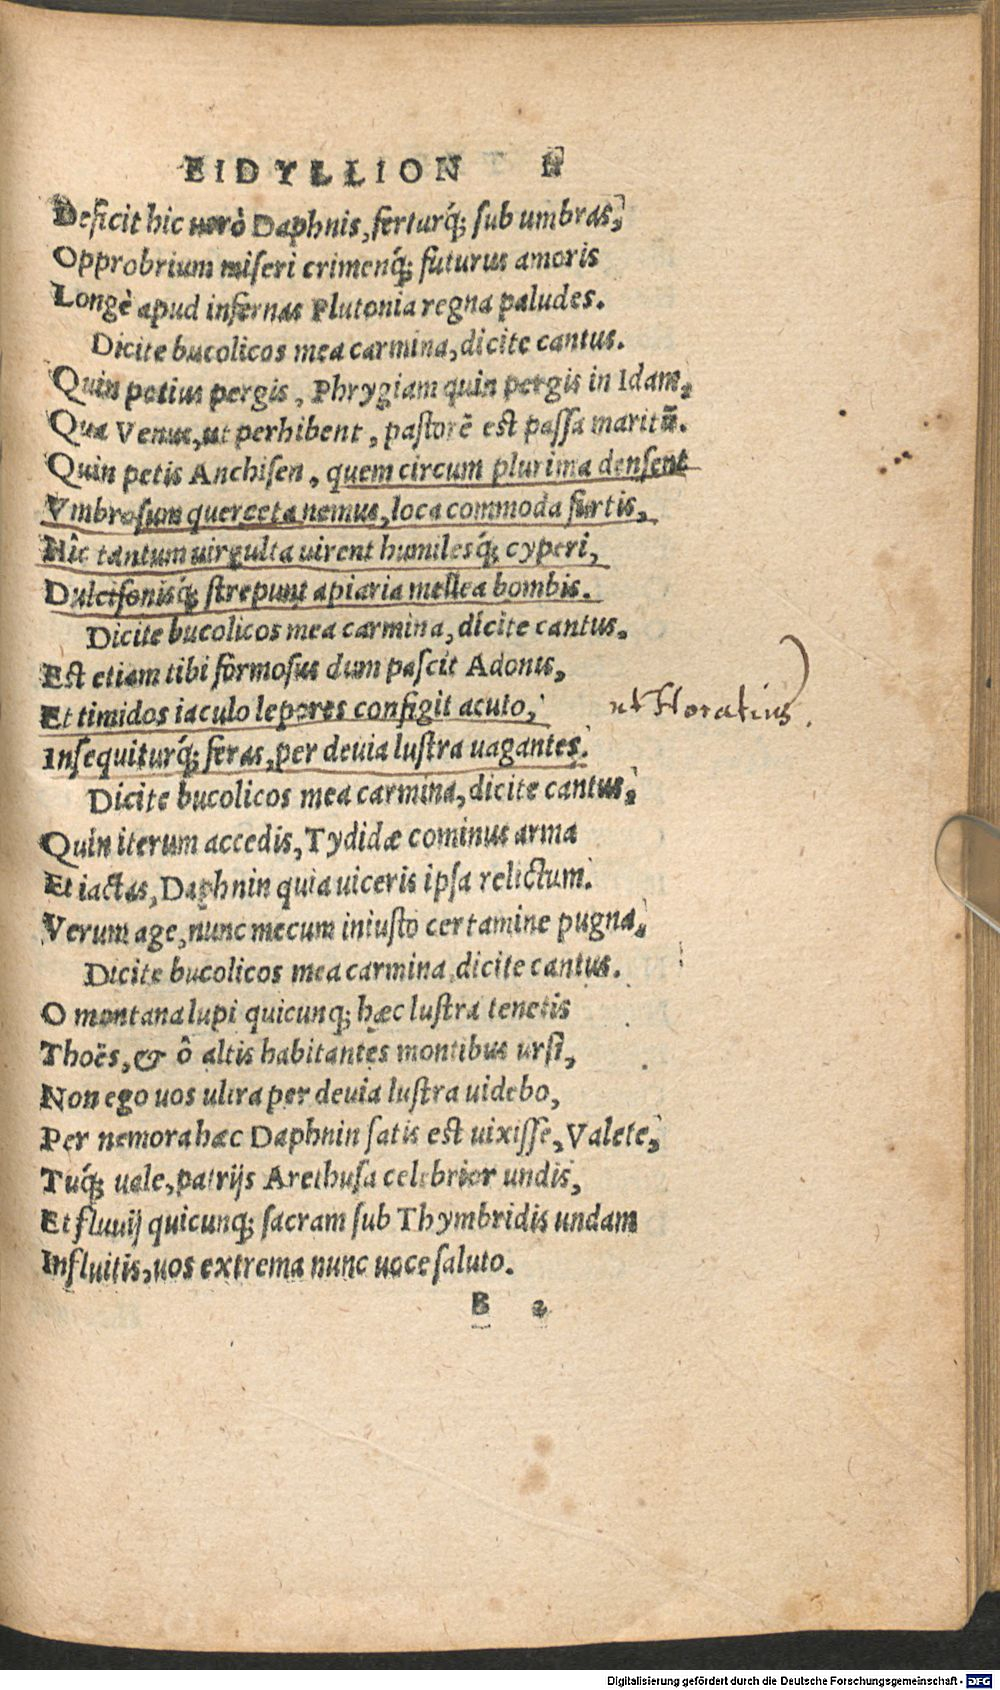 EIDYLLION
Deficit hic uerò Daphnis, ferturq́; sub umbras,
Opprobrium miseri crimenq́; futurus amoris
Longè apud infernas Plutonia regna paludes.
Dicite bucolicos mea carmina, dicite cantus.
Quin potius pergis, Phrygiam quin pergis in Idam,
Qua Venus, ut perhibent, pastorē est passa maritū.
Quin petis Anchisen, quem circum plurima densent
Vmbrosum querceta nemus, loca commoda furtis,
Hîc tantum uirgulta uirent humilesq́; cyperi,
Dulcisonisq́; strepunt apiaria mellea bombis.
Dicite bucolicos mea carmina, dicite cantus.
Est etiam tibi formosus dum pascit Adonis,
Et timidos iaculo lepores configit acuto,
ut Horatius.
Insequiturq́; feras, per deuia lustra uagantes.
Dicite bucolicos mea carmina, dicite cantus,
Quin iterum accedis, Tydidæ cominus arma
Et iactas, Daphnin quia uiceris ipsa relictum.
Verum age, nunc mecum iniusto certamine pugna,
Dicite bucolicos mea carmina dicite cantus.
O montana lupi quicunq; hæc lustra tenetis
Thoës, & ô altis habitantes montibus ursi,
Non ego uos ultra per deuia lustra uidebo,
Per nemora hæc Daphnin satis est uixisse, Valete,
Tuq́; uale, patrijs Arethusa celebrior undis,
Et fluuij quicunq; sacram sub Thymbridis undam
Influitis, uos extrema nunc uoce saluto.
B 2
Digitalisierung gefördert durch die Deutsche Forschungsgemeinschaft - DFG